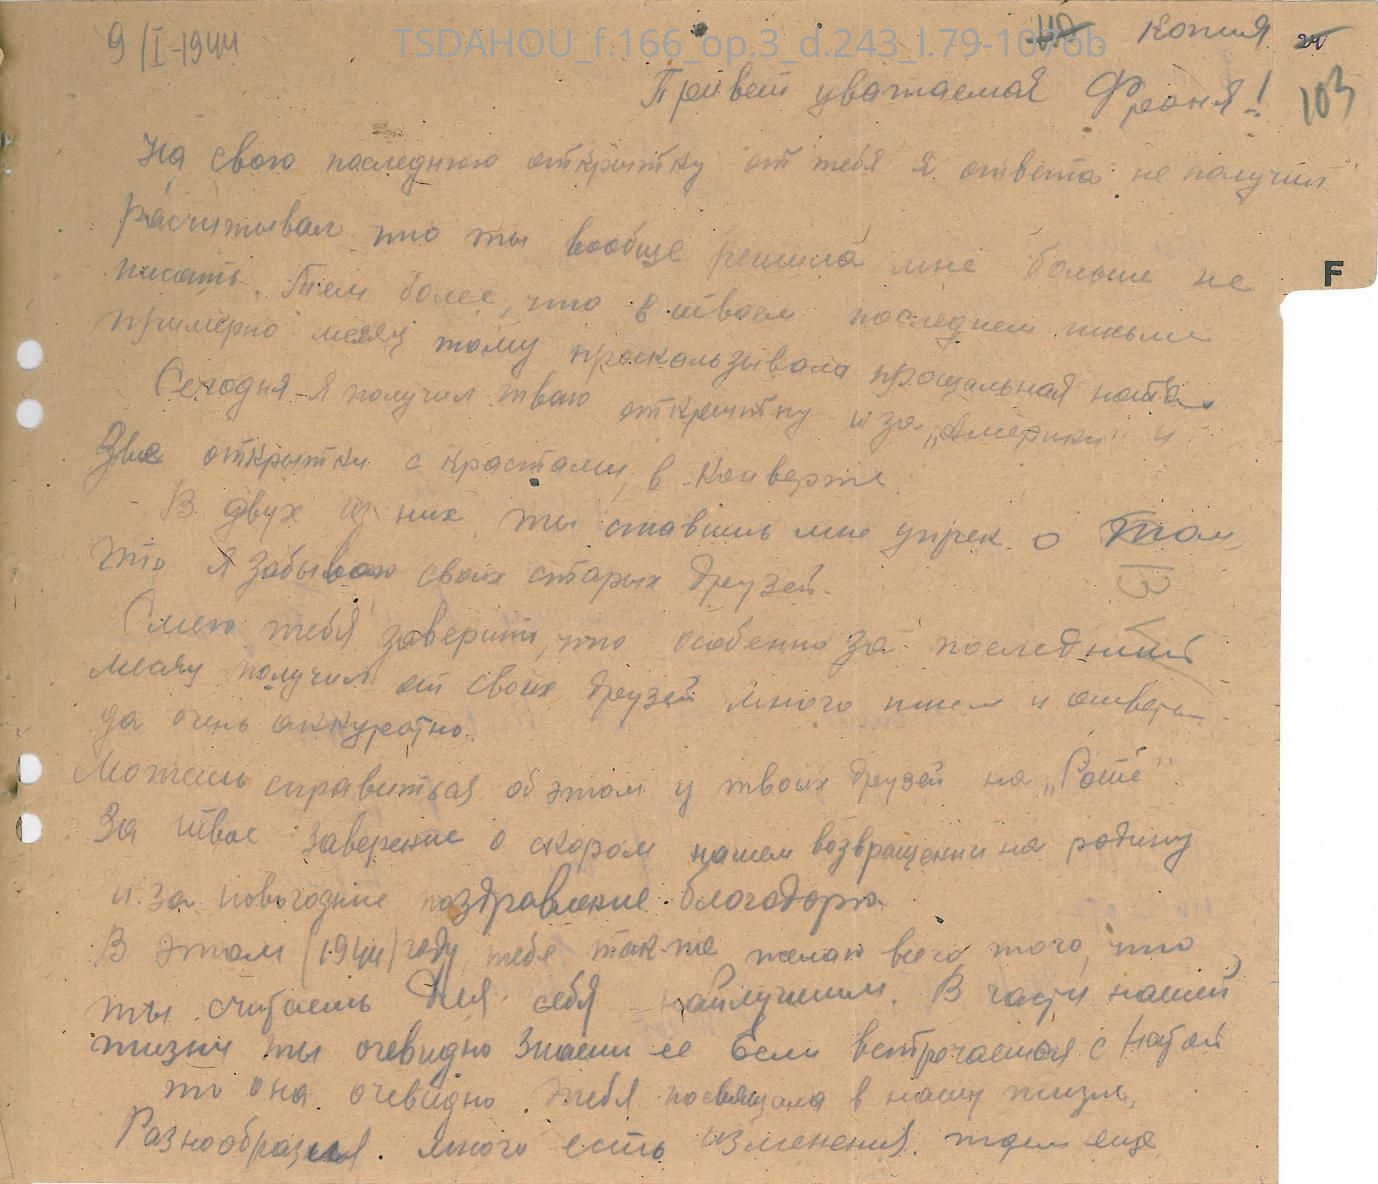 9/I-1944
TSDAHOU_f.166_op.3_d.243_l.79-109ob
Копия
103
Привет уважаемая Фроня!
На свою последнюю открытку от тебя я ответа не получил
расчитывал что ты вообще решила мне больше не
F
писать. Тем более, что в твоем последнем письме
примерно месяц тому проскользывала прощальная нота
Сегодня я получил твою открытку из за „Америки" и
две открытки с крастами, в конверте
В двух из них ты ставишь мне упрек о том,
что я забываю своих старых друзей.
13
Смею тебя заверить, что особенно за последний
месяц получил от своих друзей много писем и
да очень аккуратно.
Можешь справиться об этом у твоих друзей на „Роте"
За твое заверение о скором нашем возвращении на родину
и за новогодние поздравление благодарю
В этом (1944) году тебе также желаю всего того, что
ты считаешь для себя наилучшим. В части нашей
жизни ты очевидно знаеш ее Если встречаешся с Натой
то она очевидно тебя посвящала в нашу жизнь,
Разнообразия много есть изменения. ждем еще